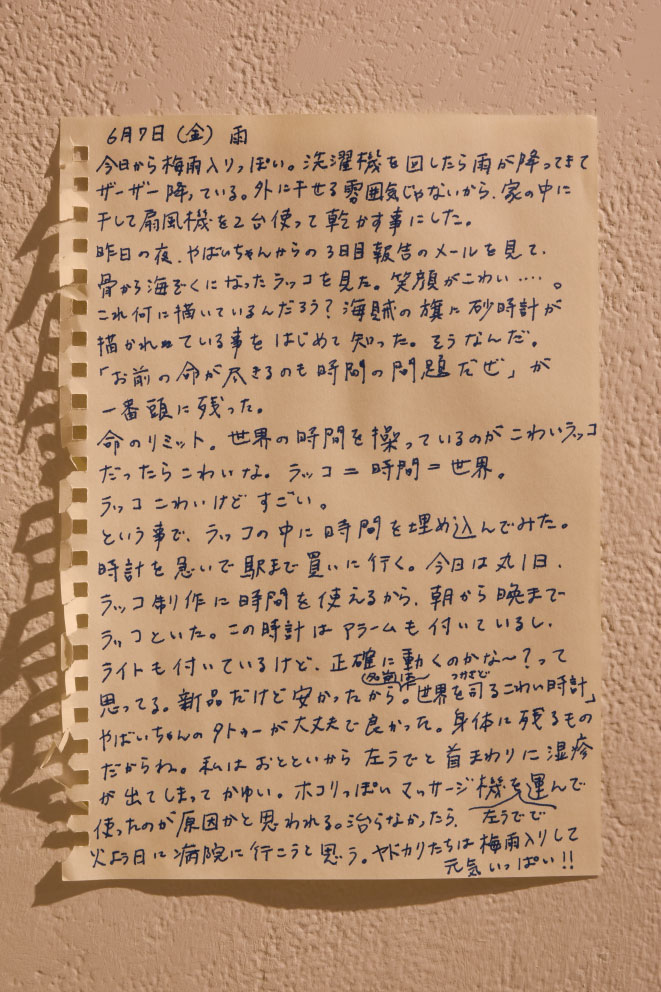 6月7日(金) 雨
今日から梅雨入りっぽい。洗濯機を回したら雨が降ってきて
ザーザー降っている。外に干せる雰囲気じゃないから、家の中に
干して扇風機を2台使って乾かす事にした。
昨日の夜、やばいちゃんからの3日目報告のメールを見て、
骨から海ぞくになったラッコを見た。笑顔がこわい‥‥。
これ何に描いているんだろう?海賊の旗に砂時計が
描かれている事をはじめて知った。そうなんだ。
「お前の命が尽きるのも時間の問題だぜ」が
一番頭に残った。
命のリミット。世界の時間を操っているのがこわいラッコ
だったらこわいな。ラッコ=時間=世界。
ラッコこわいけどすごい。
という事で、ラッコの中に時間を埋め込んでみた。
時計を急いで駅まで買いに行く。今日は丸1日、
ラッコ制作に時間を使えるから、朝から晩まで
ラッコといた。この時計はアラームも付いているし、
ライトも付いているけど、正確に動くのかな〜?って
思ってる。新品だけど安かったから。「世界を司るこわい時計」
つかさど
やばいちゃんのタトゥーが大丈夫で良かった。身体に残るもの
だからね。私はおとといから左うでと首まわりに湿疹
が出てしまってかゆい。ホコリっぽいマッサージ機を運んで
使ったのが原因かと思われる。治らなかったら、左うでで
火よう日に病院に行こうと思う。ヤドカリたちは梅雨入りして
元気いっぱい!!